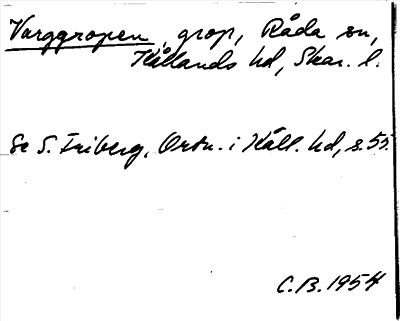 Varggropen, grop, Råda sn,
Kållands hd, Skar. l.
Se S. Friberg, Ortn. i Kåll. hd, s. 55.
C.B. 1954